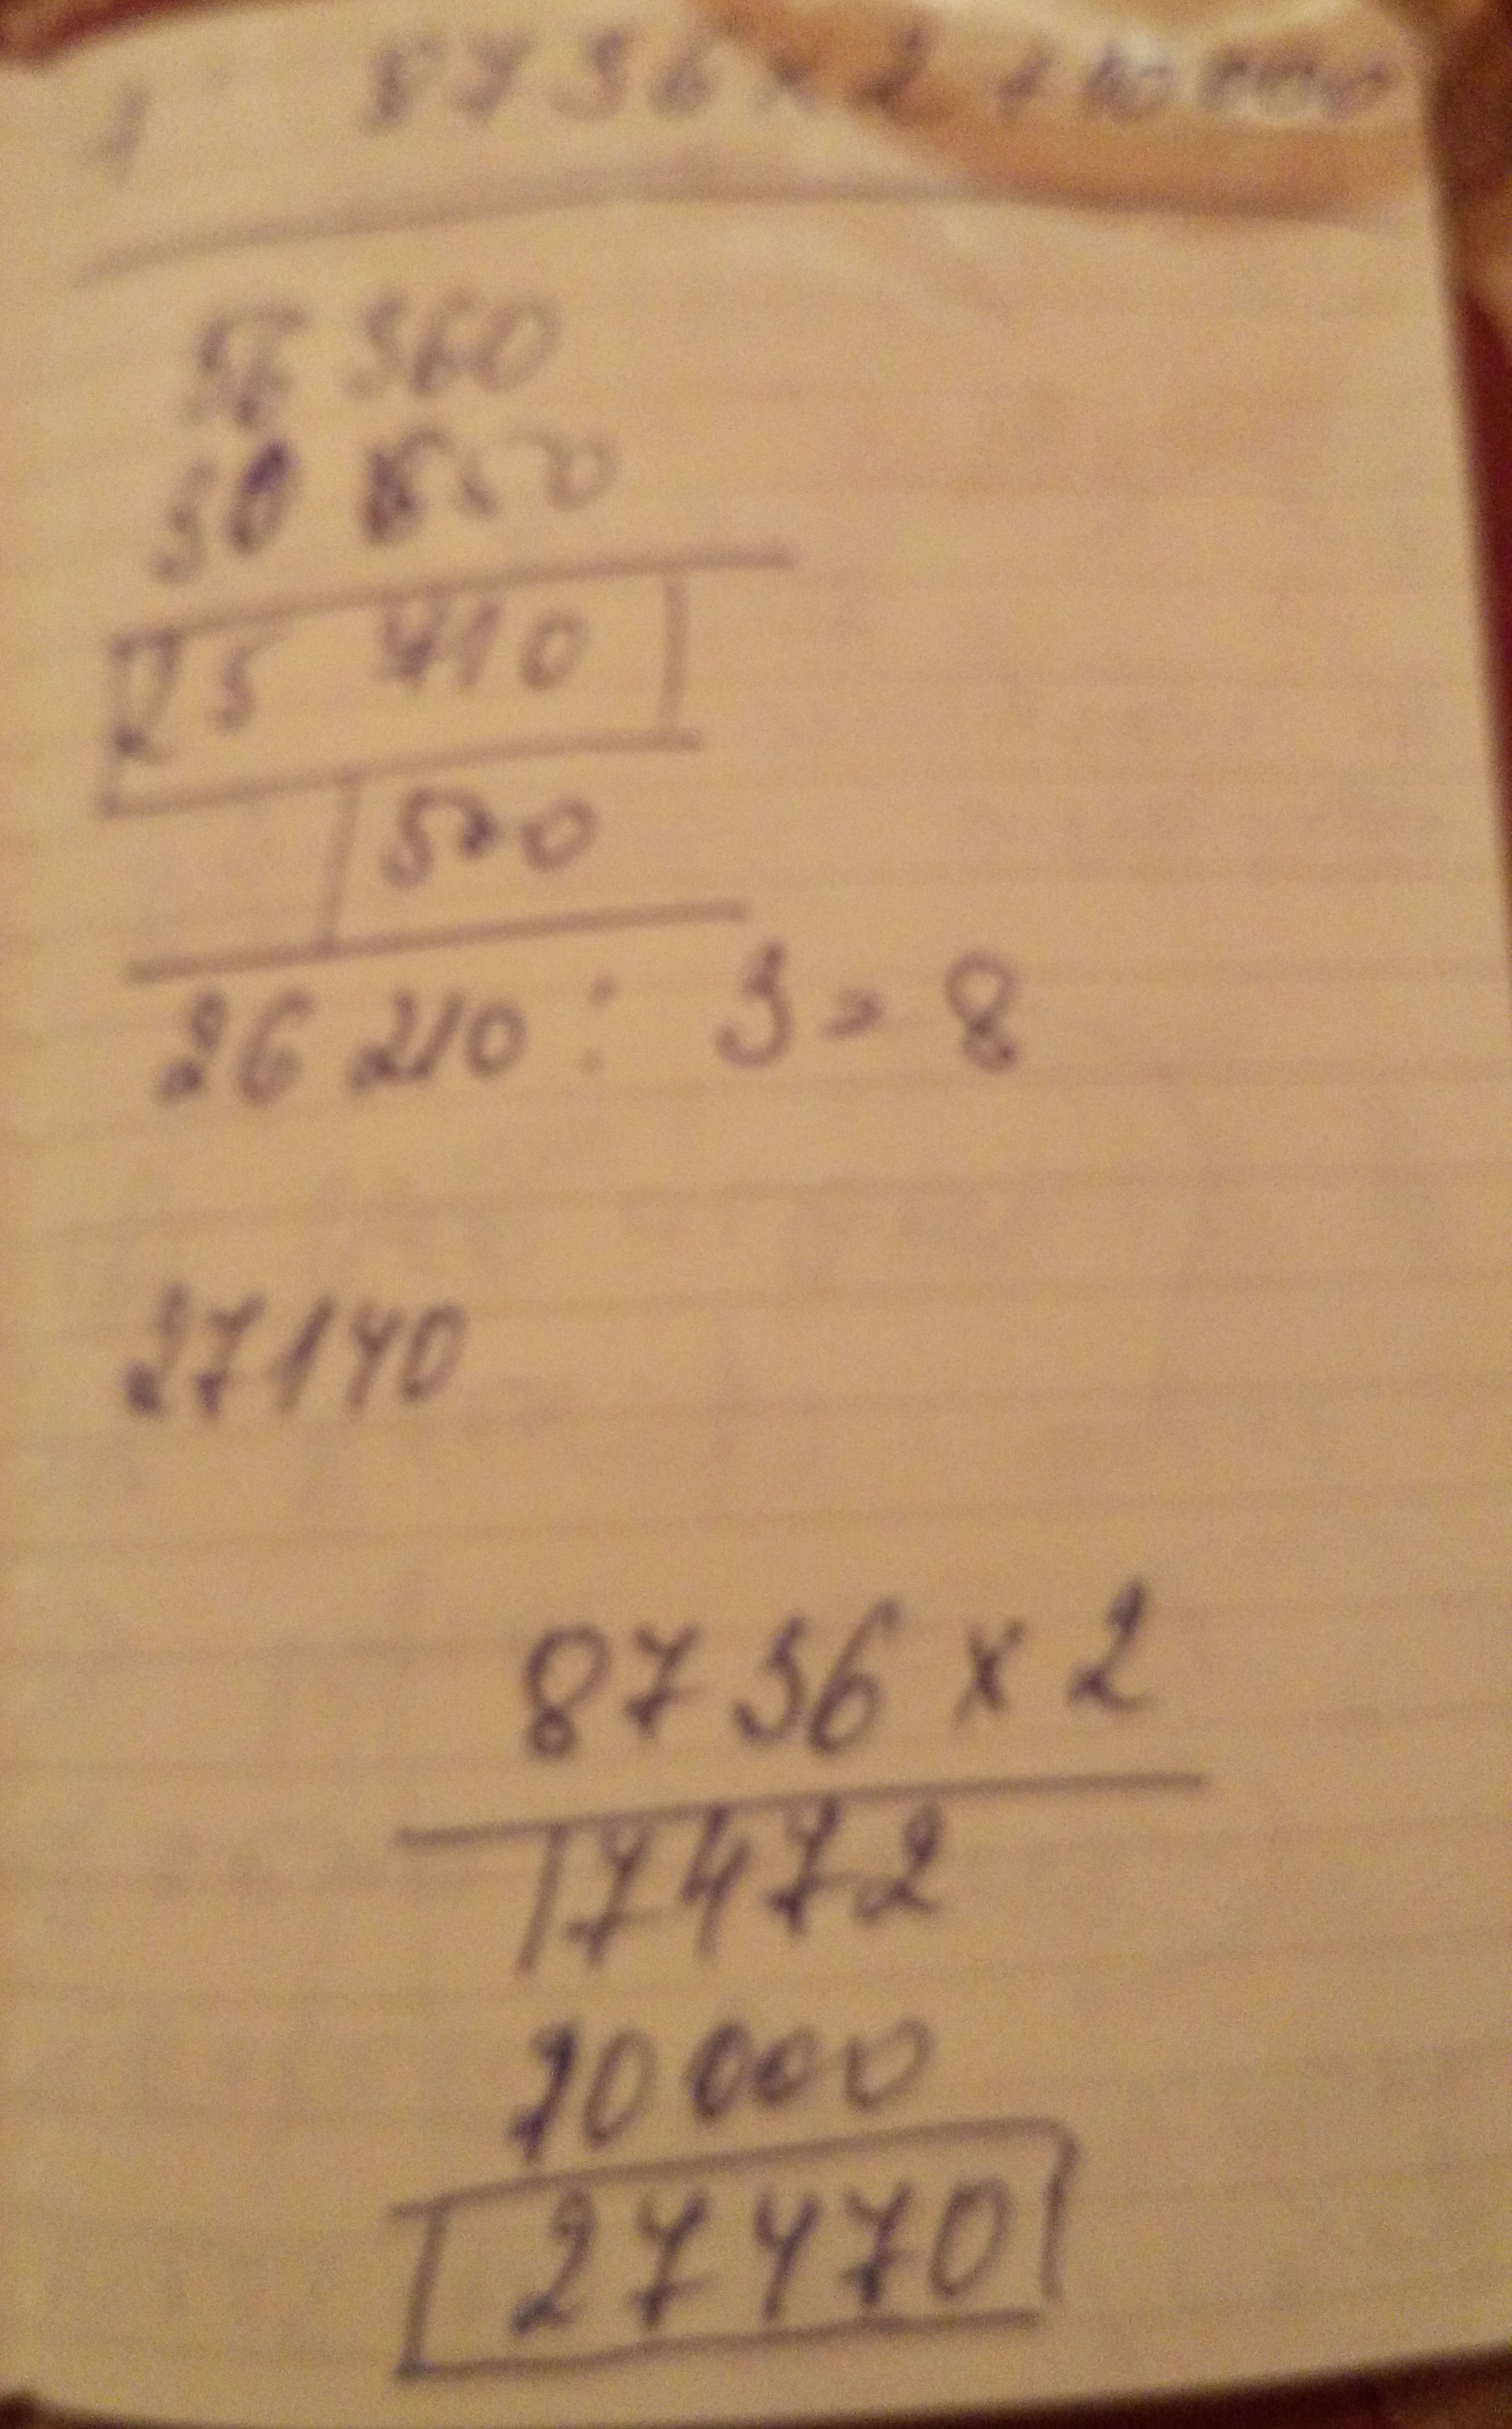 1 8736 x 2 + 10 000
56 360
30 650
25 710
500
26 210 : 3 = 8
27140
8736 x 2
17472
10 000
27470